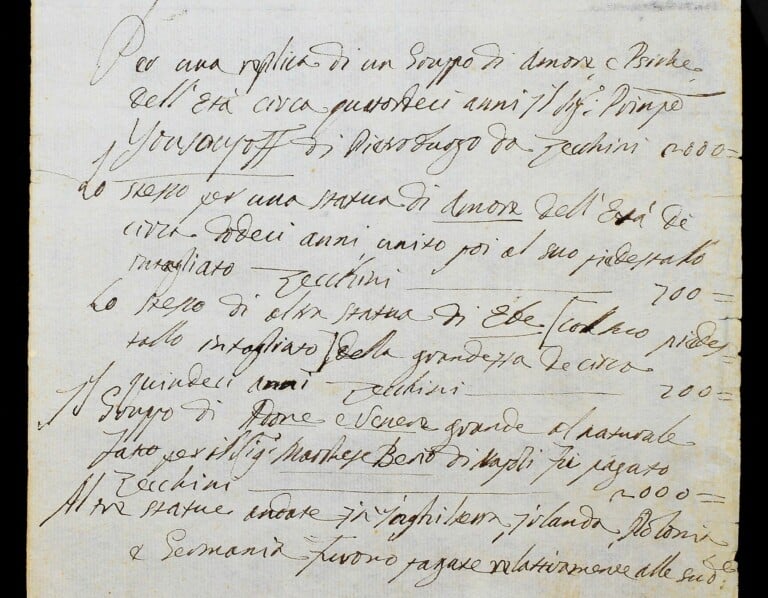 Per una replica di un Gruppo di Amore e Psiche
dell' Età circa quattordeci anni Il Sig.r Principe
Yousoupoff di Pietroburgo da Zecchini 2000=
Lo stesso per una statua di Amore dell' Età di
circa dodeci anni, unito poi al suo piedestallo
intagliato Zecchini 700=
Lo stesso di altra statua di Ebe [col suo piedes-
tallo intagliato] della grandezza de circa
quindeci anni Zecchini 700=
Il Gruppo di Adone e Venere grande al naturale
fatto per il Sig.r Marchese Berio di Napoli fu pagato
Zecchini 2000=
Altre statue andate in Inghiltera, Irlanda, Polonia
e Germania furono pagate relativamente alle sud.e